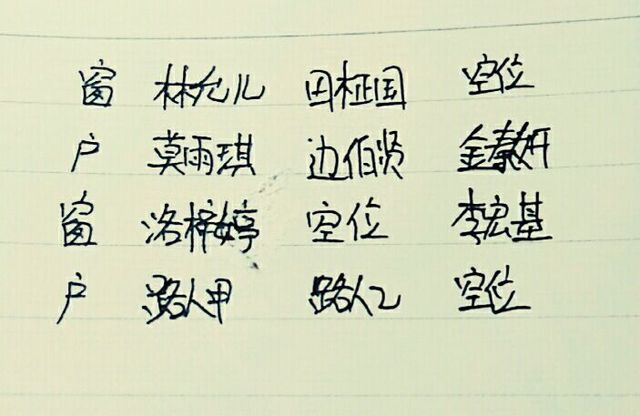 窗 林允儿 田柾国 空位
户 莫雨琪 边伯贤 金泰妍
窗 洛梓婷 空位 李宏基
户 路人甲 路人乙 空位